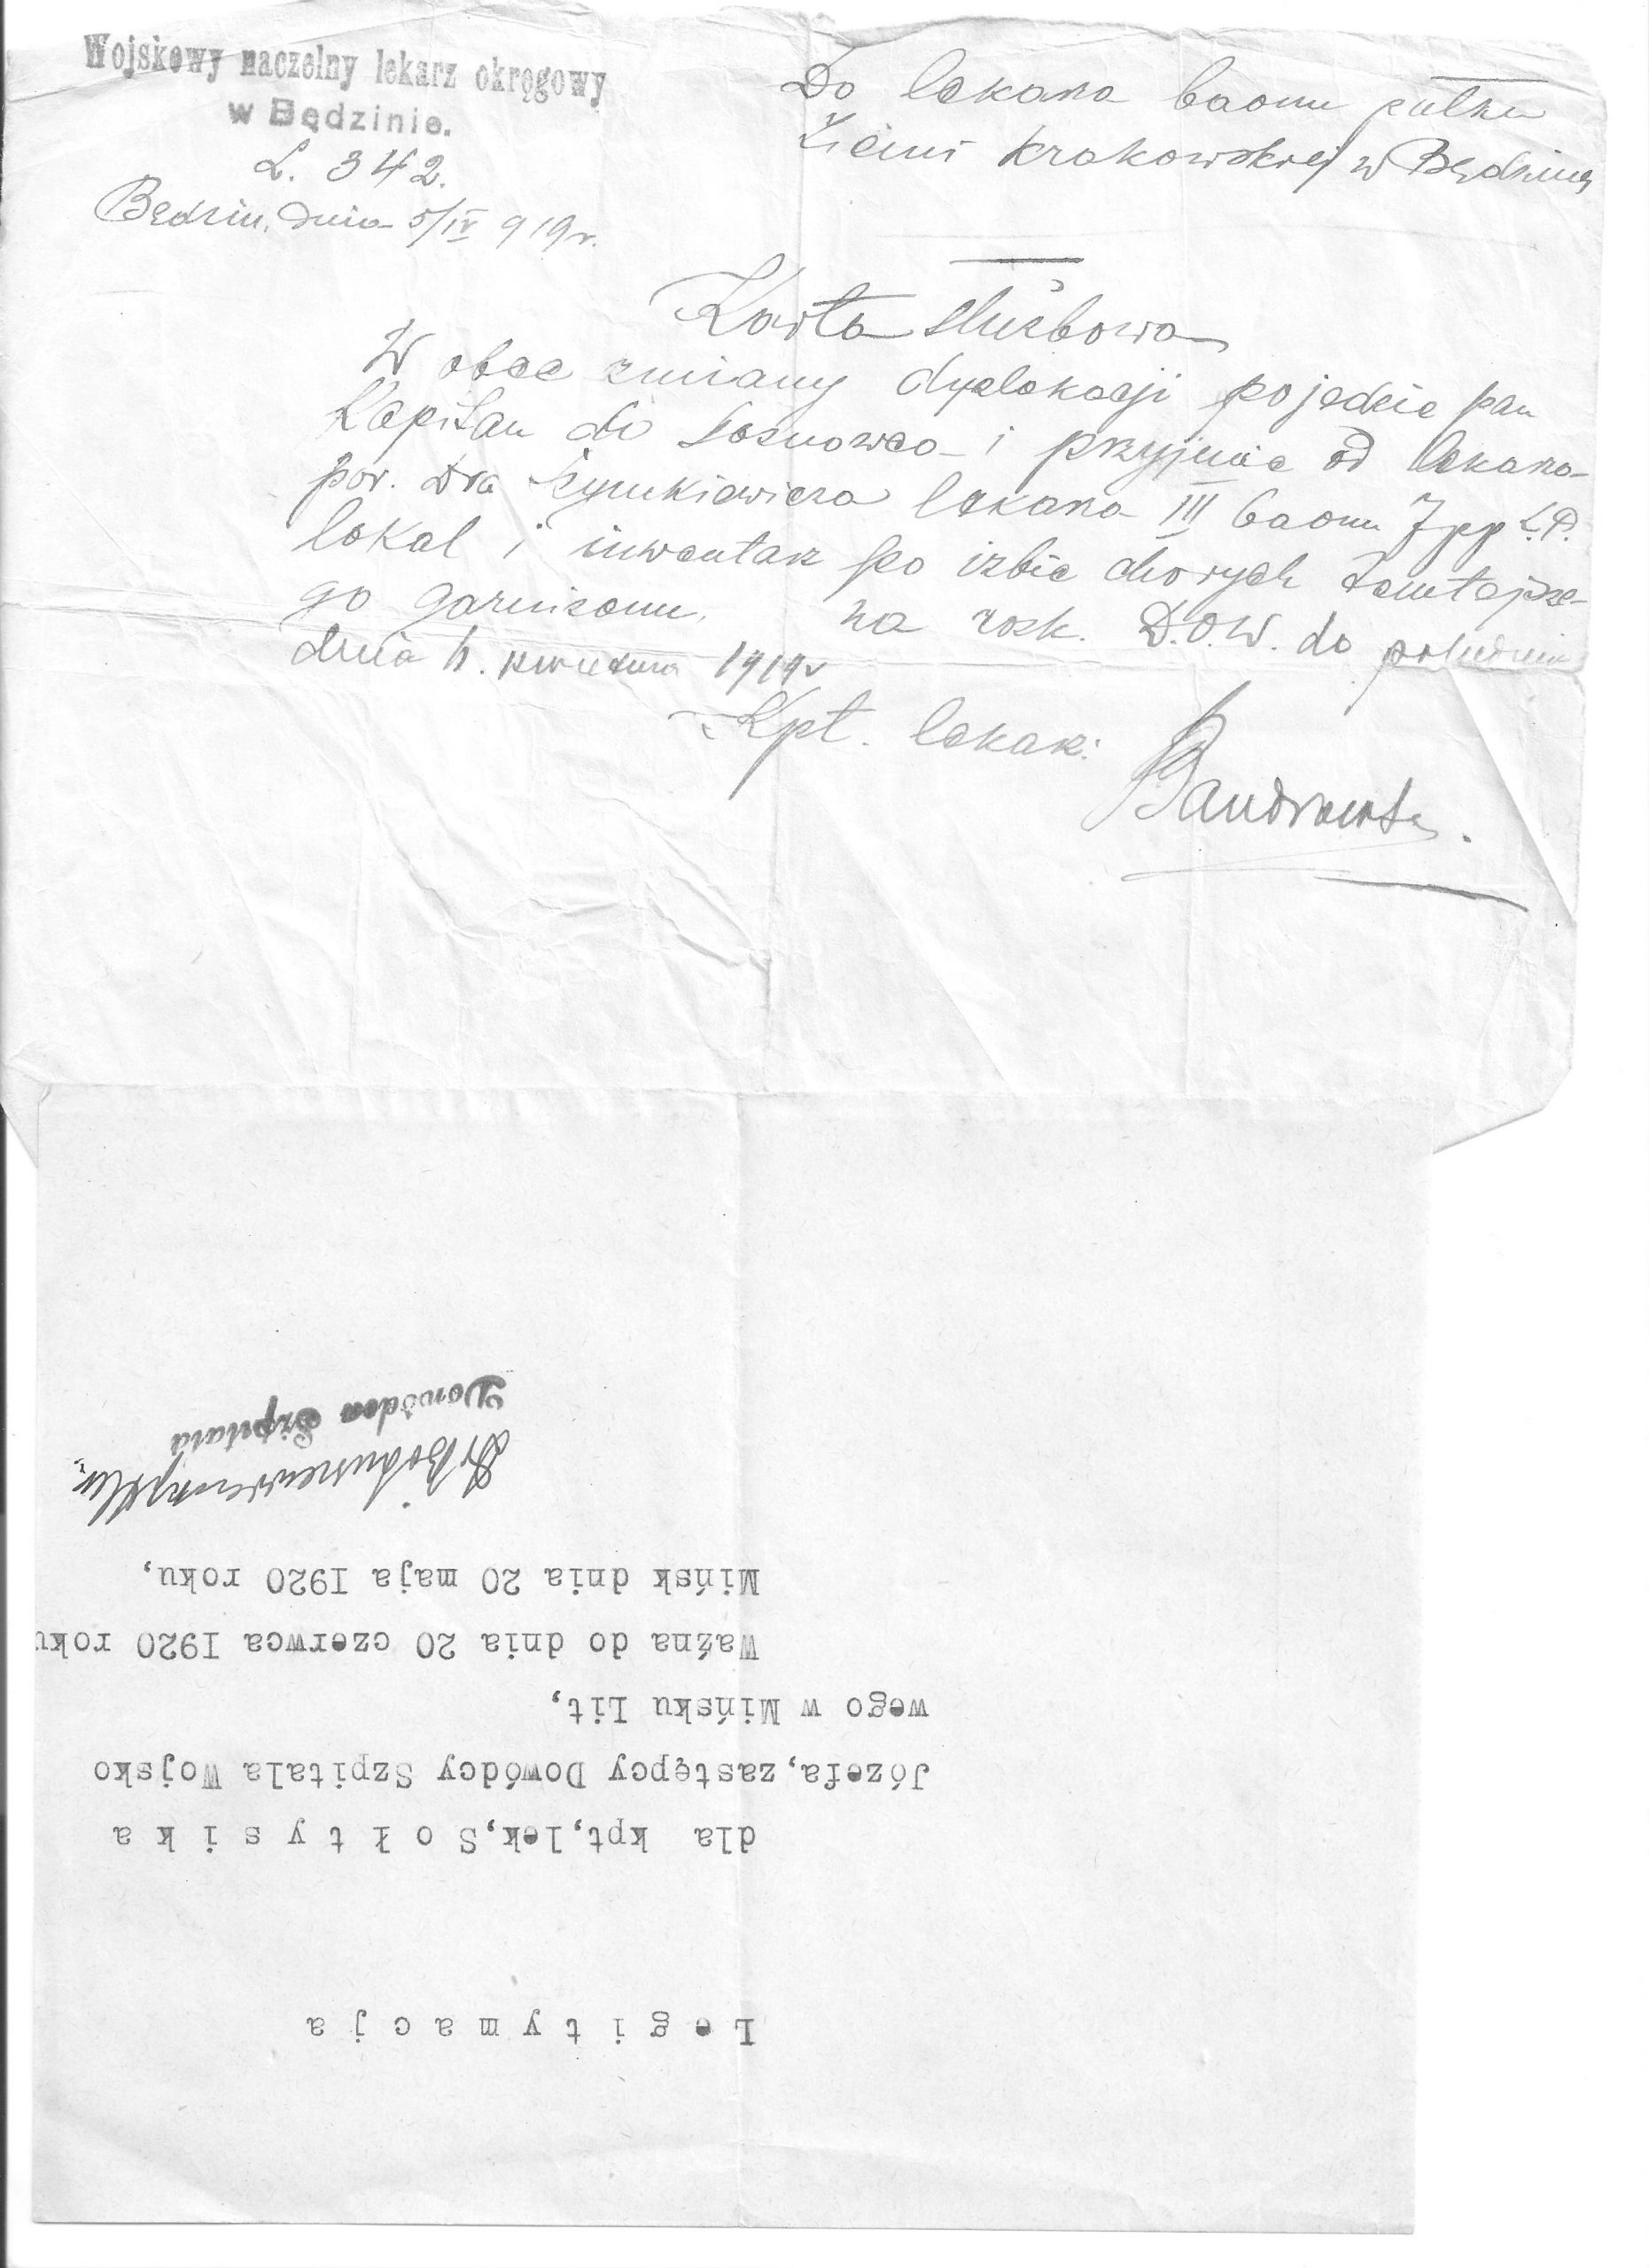 Wojskowy naczelny lekarz okręgowy
w Będzinie.
L. 342.
Będzin, dnia 5/IV 919 r.
Do lekarza baonu pułku
Ziemi Krakowskiej w Będzinie
Karta służbowa
W obec zmiany dyslokacji pojedzie pan
Kapitan do Sosnowca i przyjmie od lekarza
por. Dra lekarza III baonu 7 pp L.P.
lokal i inwentarz po izbie chorych tamtejsze-
go garnizonu. na rozk. D.O.W. do południa
dnia kwietnia 1919 r
Kpt. lekarz:
Legitymacja
dla kpt,lek,Sołtysika
Józefa,zastępcy Dowódcy Szpitala Wojsko
wego w Mińsku Lit,
Ważna do dnia 20 czerwca I920 roku
Mińsk dnia 20 maja I920 roku,
Dowódca Szpitala